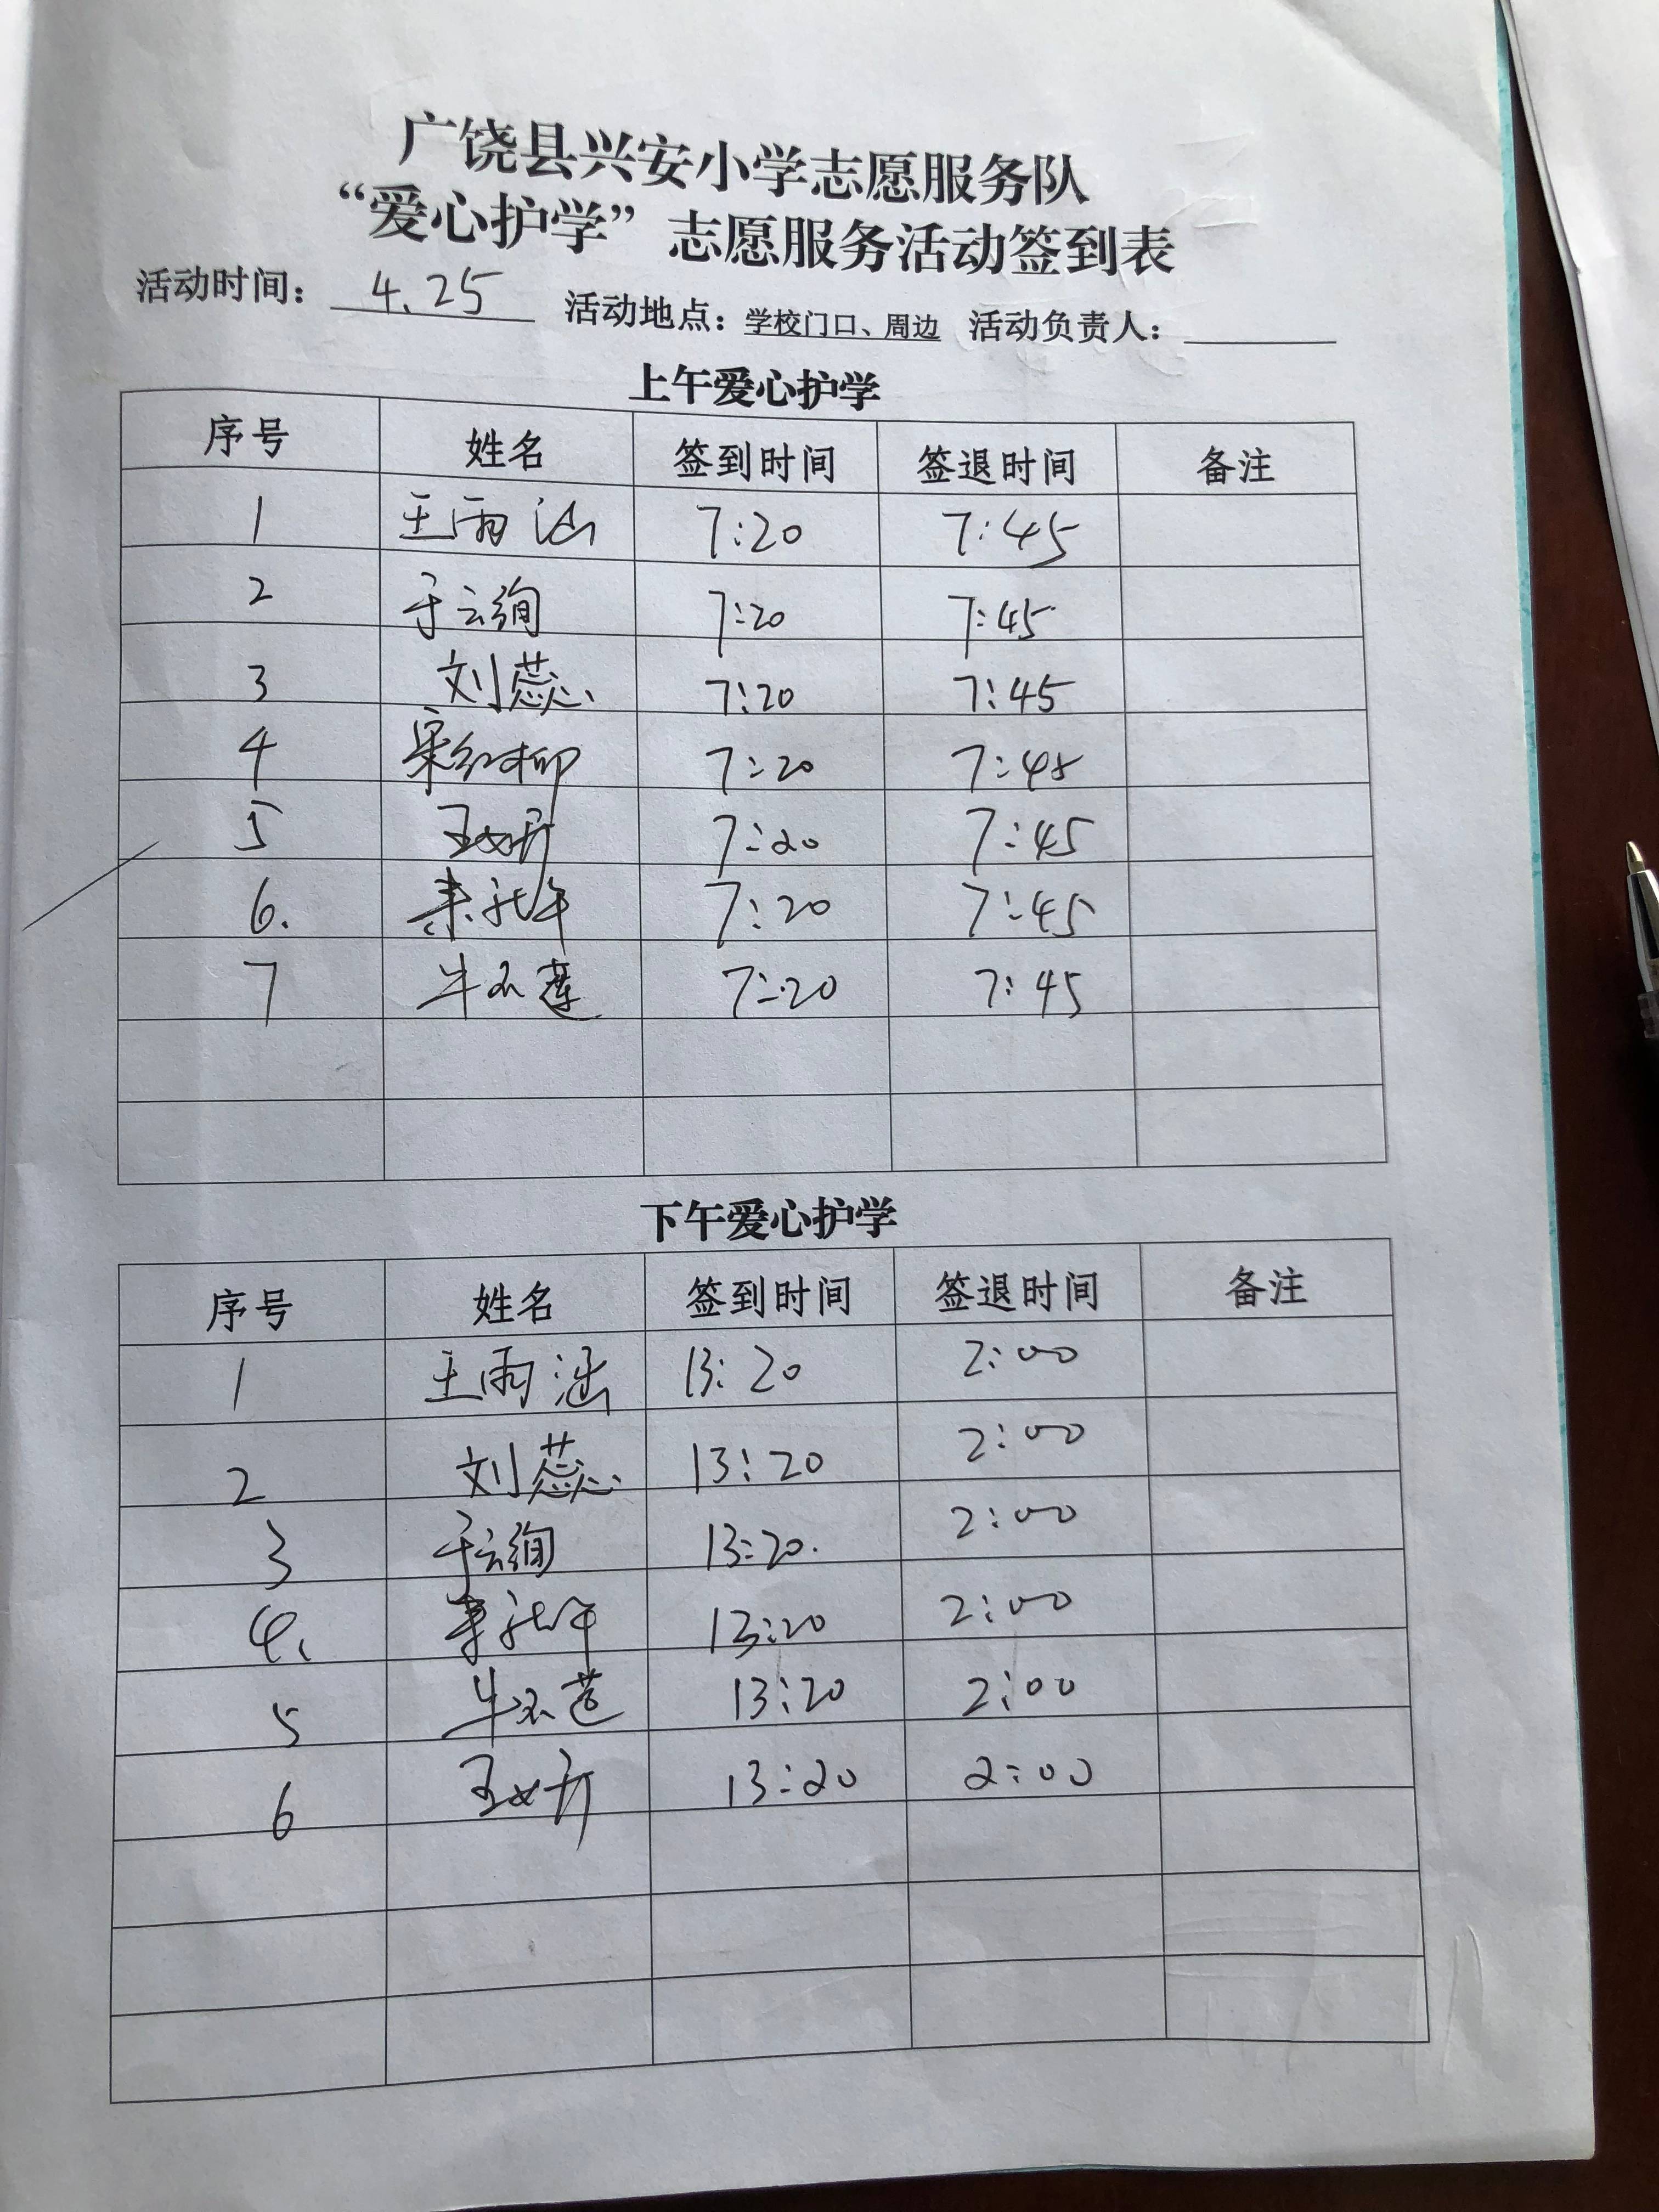 广饶县兴安小学志愿服务队
“爱心护学”志愿服务活动签到表
活动时间： 4.25 活动地点：学校门口、周边 活动负责人：
上午爱心护学
序号 姓名 签到时间 签退时间 备注
1 王雨涵 7:20 7:45
2 于云绚 7:20 7:45
3 刘蕊 7:20 7:45
4 宋红柳 7:20 7:45
5 王如升 7:20 7:45
6. 7:20 7:45
7 7:20 7:45
下午爱心护学
序号 姓名 签到时间 签退时间 备注
1 王雨涵 13:20 2:00
2 刘蕊 13:20 2:00
3 于云绚 13:20. 2:00
4. 13:20 2:00
5 13:20 2:00
6 13:20 2:00